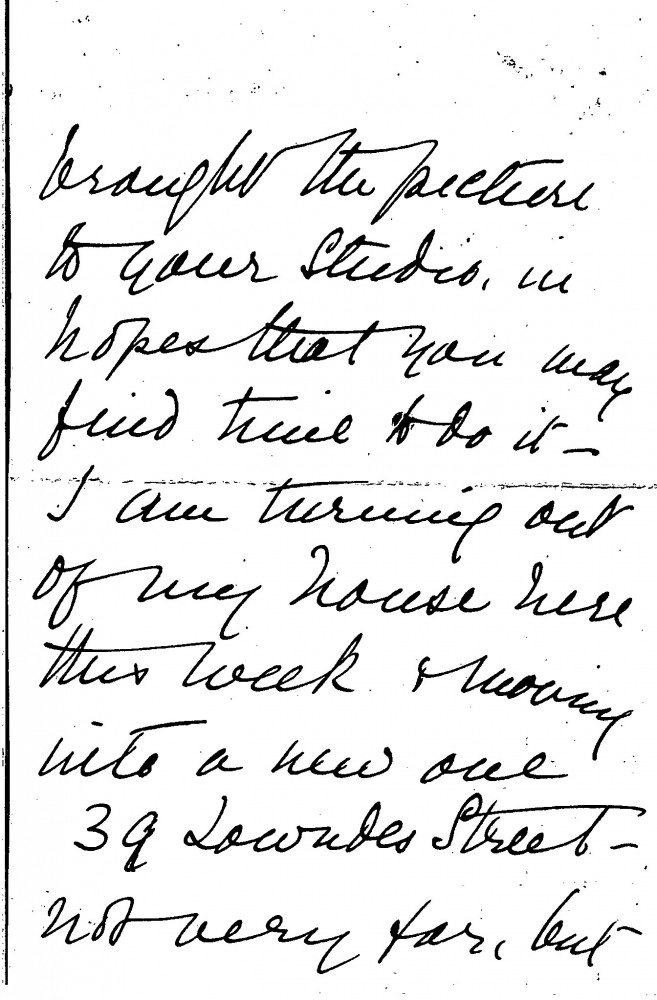 brought the picture
to your Studio, in
hopes that you may
find time to do it –
I am turning out
of my house here
this week & moving
into a new one
39 Lowndes Street –
not very far, but